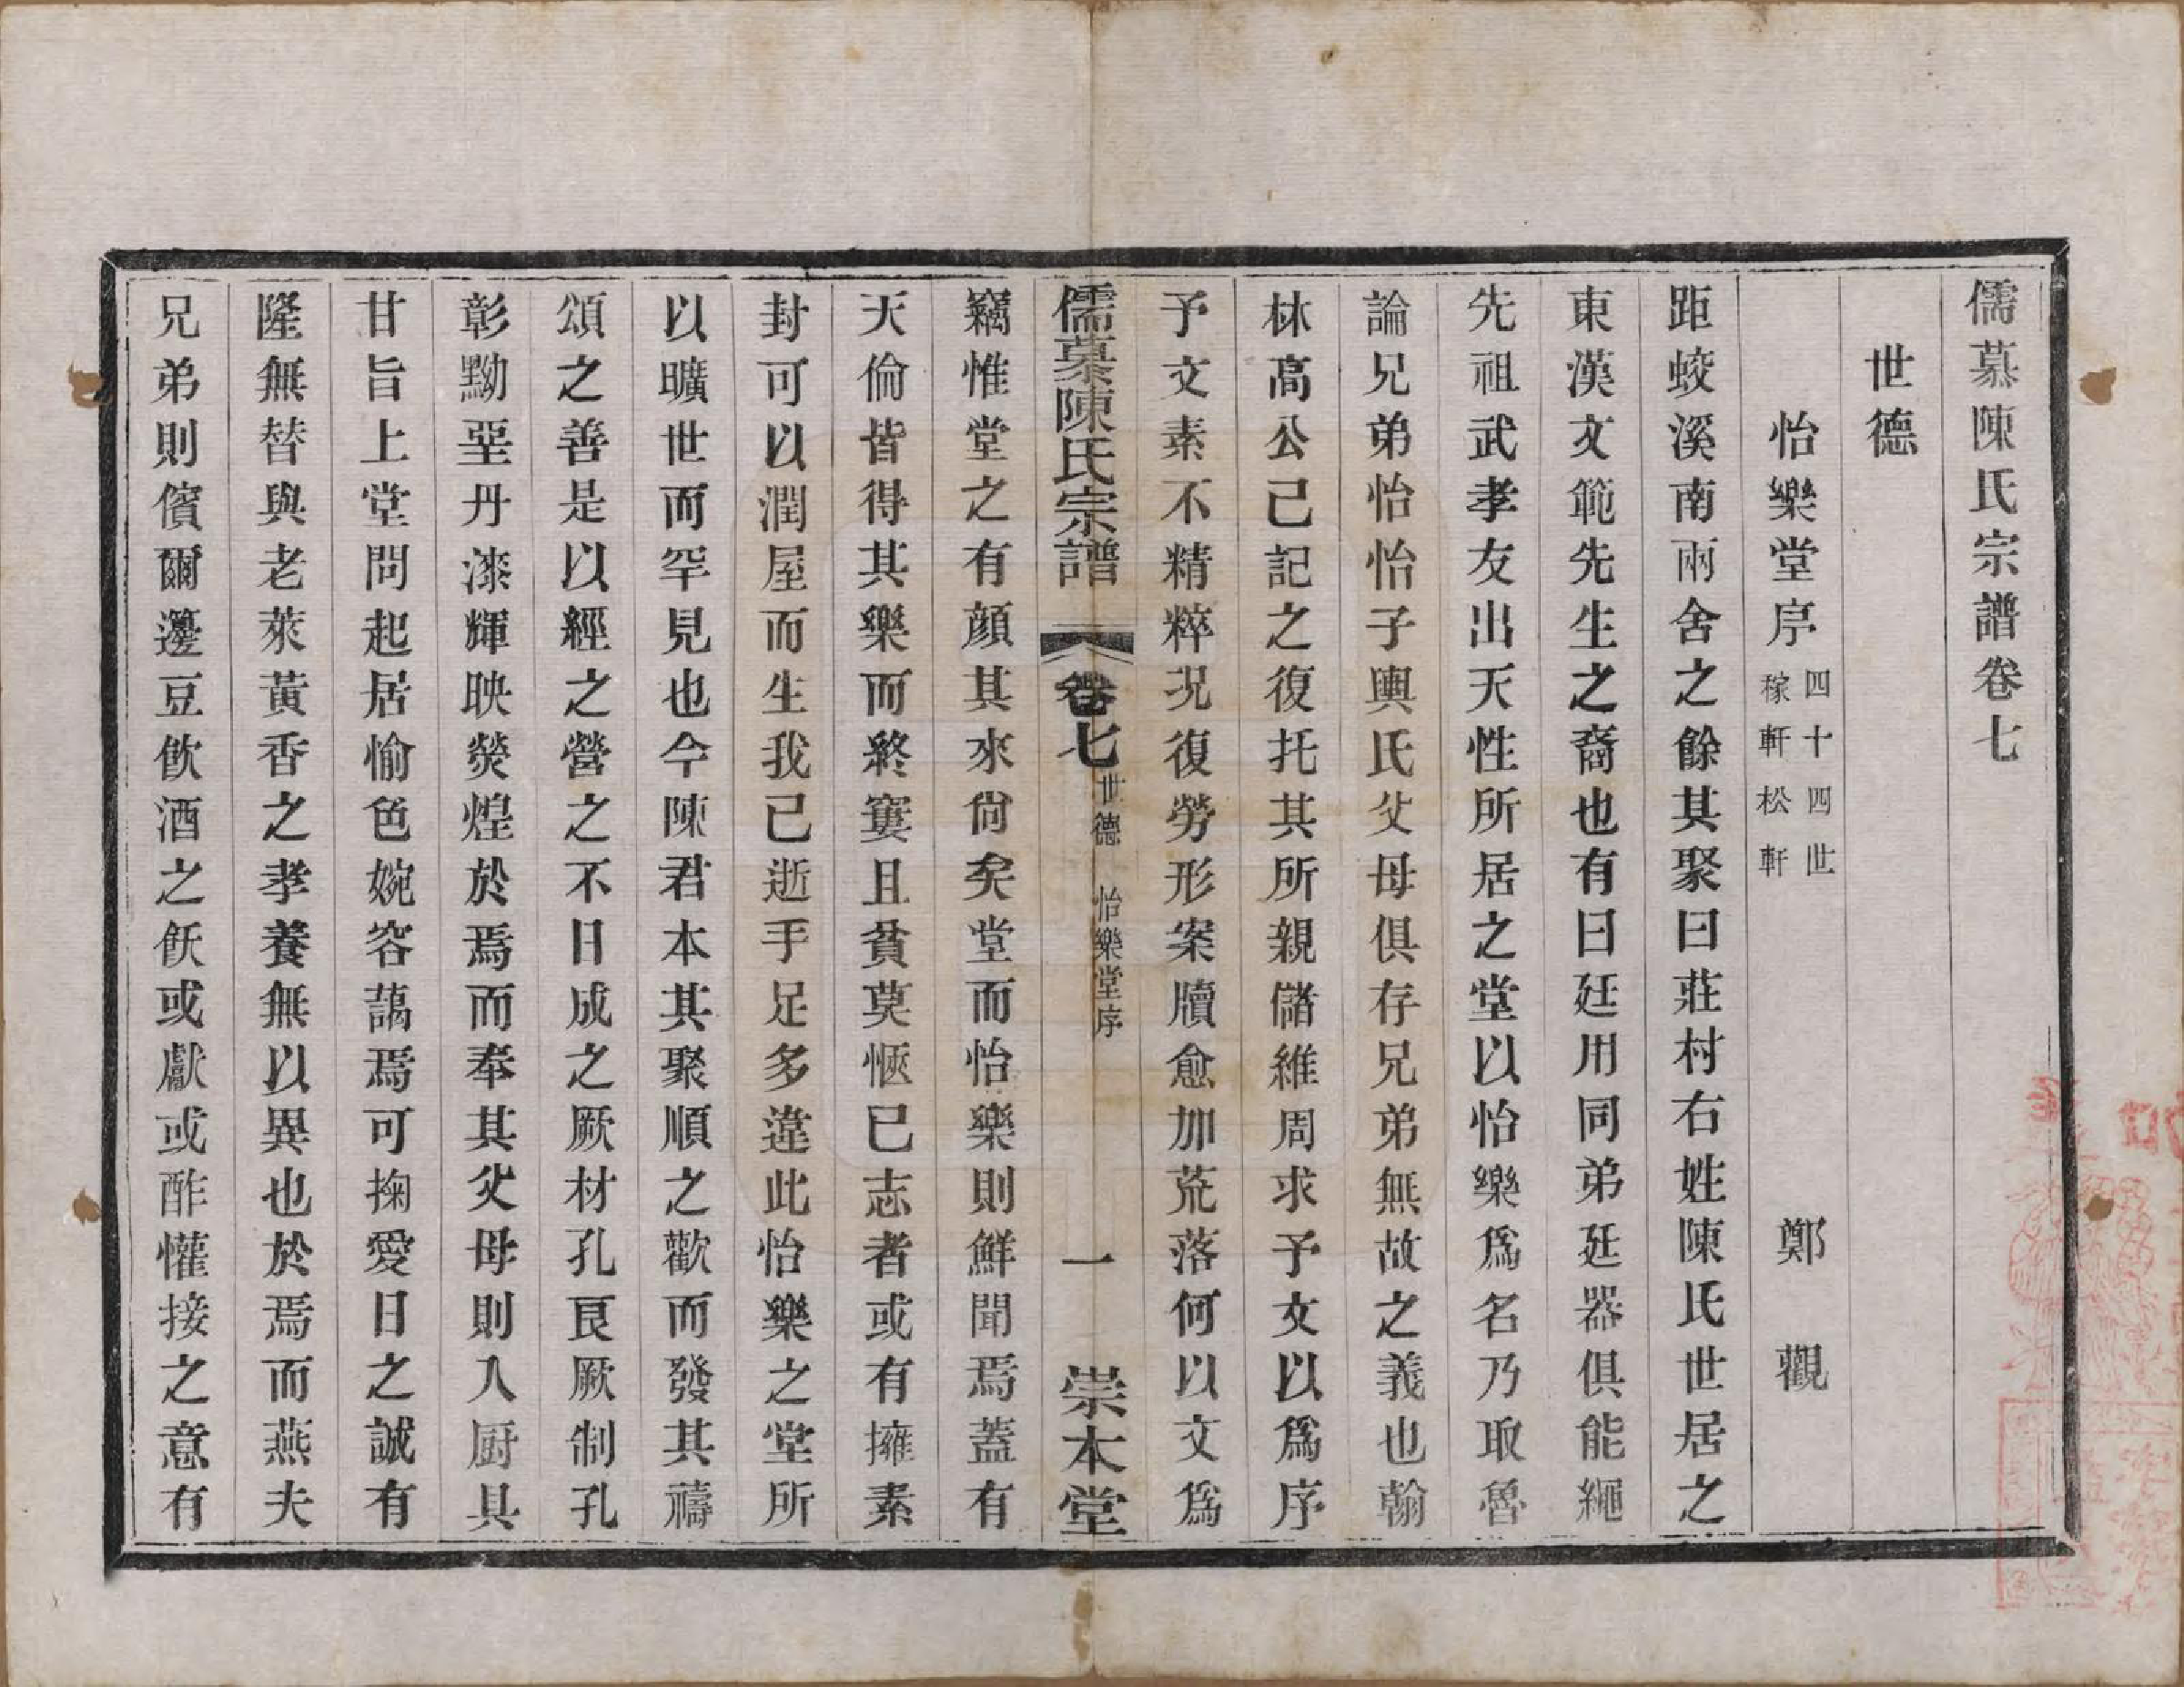 儒慕陳氏宗譜卷七
世德
怡樂堂序 四十四世 稼軒松軒 鄭觀
距蛟溪南兩舍之餘其聚曰莊村右姓陳氏世居之
東漢文範先生之裔也有曰廷用同弟廷器俱能繩
先祖武孝友出天性所居之堂以怡樂爲名乃取魯
論兄弟怡怡子輿氏父母俱存兄弟無故之義也翰
林高公已記之復托其所親儲維周求予文以爲序
予文素不精粹況復勞形案牘愈加荒落何以文爲
儒慕陳氏宗譜 卷七 世德 怡樂堂序 一 崇本堂
竊惟堂之有顏其來尙矣堂而怡樂則鮮聞焉蓋有
天倫皆得其樂而終窶且貧莫愜已志者或有擁素
封可以潤屋而生我已逝手足多違此怡樂之堂所
以曠世而罕見也今陳君本其聚順之歡而發其禱
頌之善是以經之營之不日成之厥材孔良厥制孔
彰黝堊丹漆輝映熒煌於焉而奉其父母則入厨具
甘旨上堂問起居愉色婉容藹焉可掬愛日之誠有
隆無替與老萊黃香之孝養無以異也於焉而燕夫
兄弟則儐爾籩豆飲酒之飫或獻或酢懽接之意有